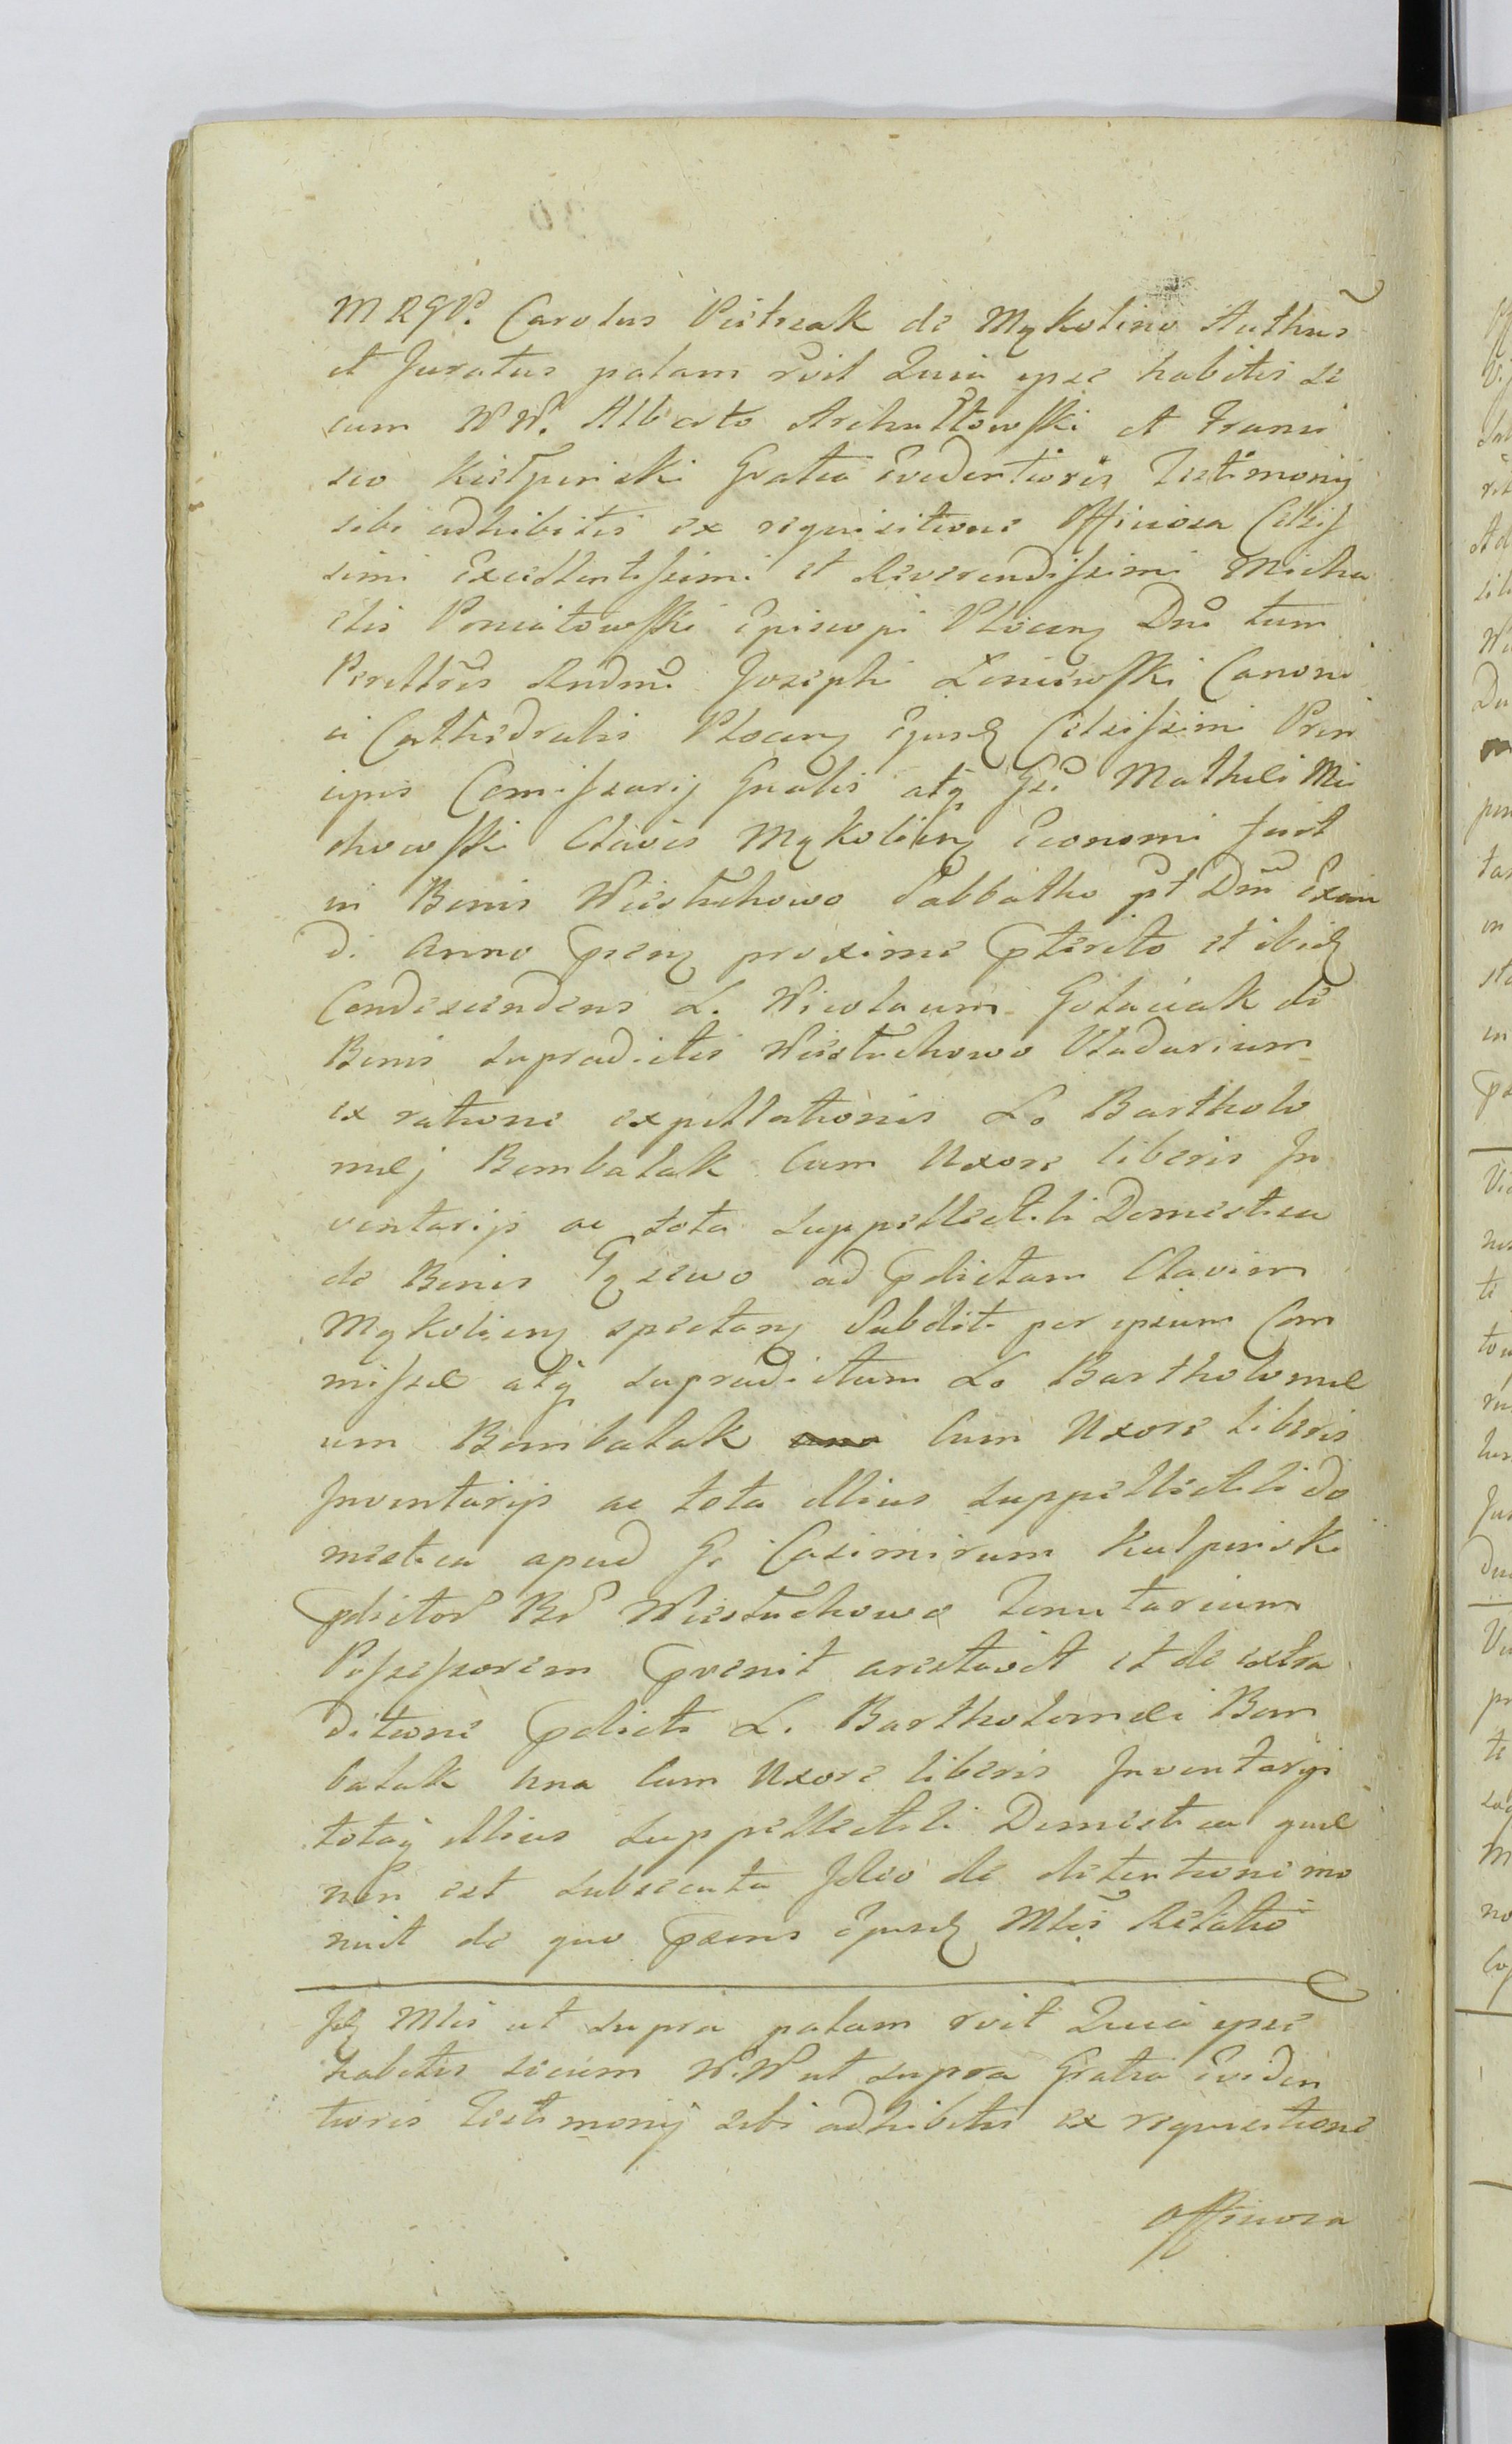 MRGP. Carolus Pietrzak de Mykolino Authus
et Juratus palam rvit Quia ipse habitis se
cum NN. Alberto Archutowski et Franci
sco Kiełpinski Gratia Evidentioris Testimonij
sibi adhibitis ex requisitione Officiosa Celsis
simi Excellentissimi et Reverendissimi Micha
elis Poniatowski Episcopi Plocen Dni tum
Perillris Rndmi Josephi Leniewski Canoni
ci Cathedralis Plocen Ejusd Celsissimi Prin
cipis Comissarij Gnalis atq Gsi Mathei Mi
chowski Clavis Mykolien Economi fuit
in Bonis Wiesluchowo Sabbatho pt Dni Exau
di Anno psen proxime pterito et ibid
Condescendens L. Nicolaum Golaciak de
Bonis supradictis Wiesluchowo Vladarium
ex ratione expellationis L. Bartholo
mej Bembalak Cum Uxore liberis In
ventarijs ac tota suppellectili Domestica
de Bonis Gzewo ad pdictam Clavim
Mykolien spectan Subditi per ipsum Com
missae atq supradictum L. Bartholomae
um Bembalak Cum Uxore liberis
Inventarijs ac tota illius suppellectili do
mestica apud G. Casimirum Kulpinski
pdictor Br Wiesluchowo Tenutarium
Possessorem pvenit arestavit et de extra
ditione pdicti L. Bartholomaei Bem
balak una Cum Uxore liberis Inventarijs
totaq illius suppellectili Domestica quae
non est subsecuta Ideo de detentione mo
nuit de quo psens Ejusd Mlis Relatio
Id Mlis ut supra palam rvit Quia ipse
habitis secum N.N ut supra Gratia Eviden
tioris Testimonij sibi adhibitis ex requisitione
Officiosa